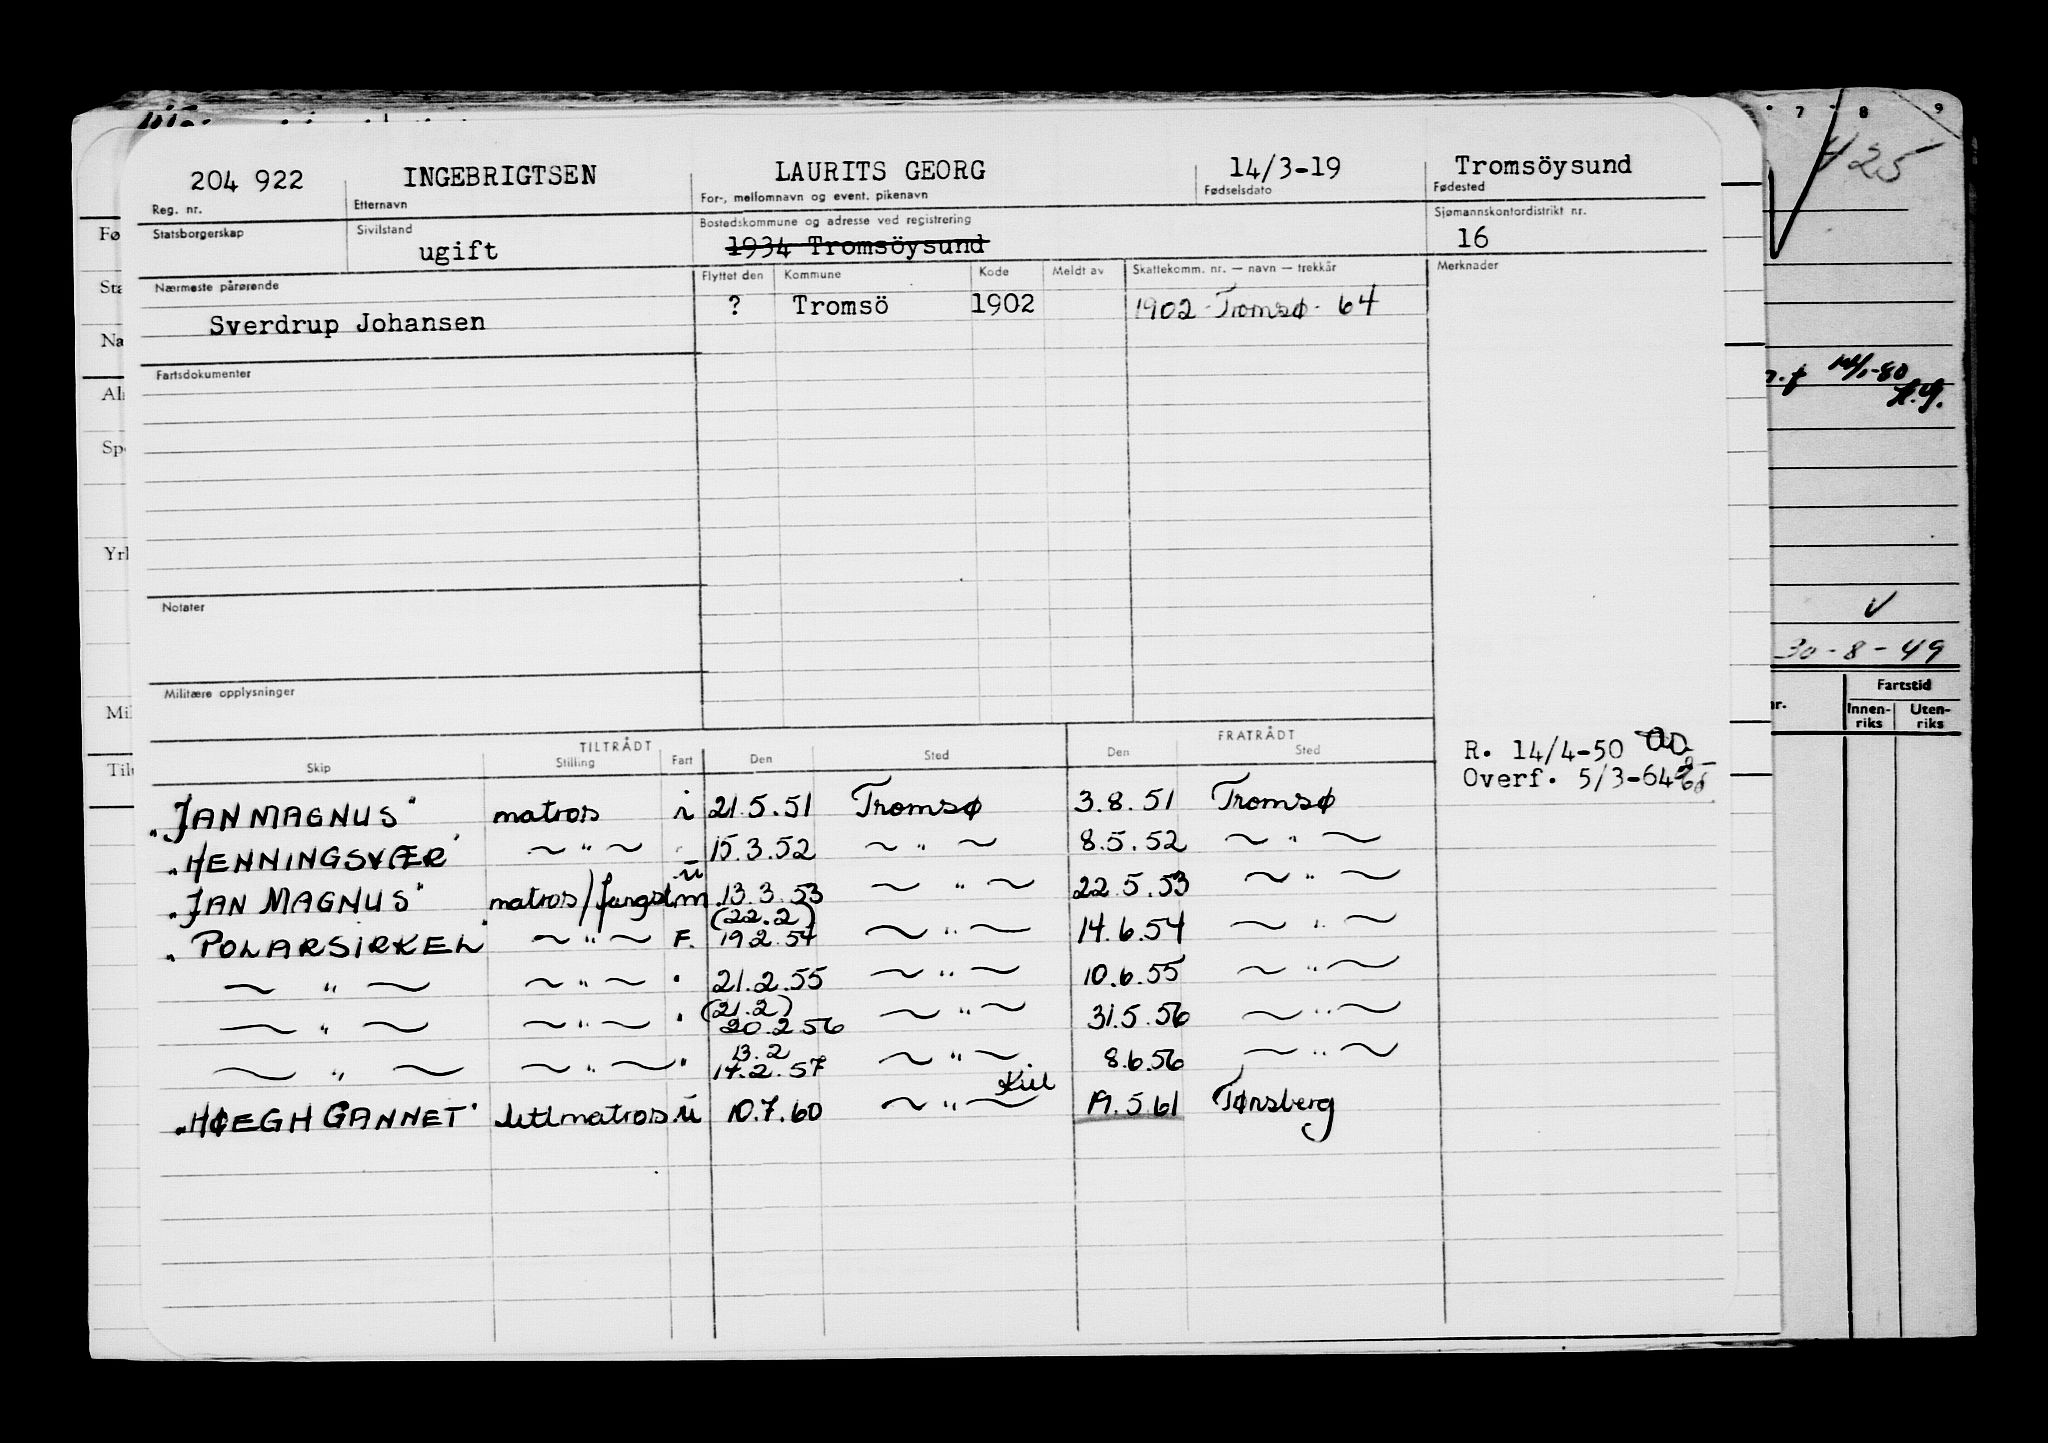 204 922 INGEBRIGTSEN LAURITS GEORG 14/3-19 Tromsöysund
Reg. nr. Etternavn For-, mellomnavn og event. pikenavn Fødselsdato Fødested
Statsborgerskap Sivilstand Bostedskommune og adresse ved registrering Sjømannskontordistrikt nr.
ugift 1934 Tromsöysund 16
Nærmeste pårørende Flyttet den Kommune Kode Meldt av Skattekomm. nr. — navn — trekkår Merknader
Sverdrup Johansen ? Tromsö 1902 1902 - Tromsø - 64
Fartsdokumenter
Notater
Militære opplysninger
R. 14/4-50
Overf. 5/3-64
TILTRÅDT FRATRÅDT
Skip Stilling Fart Den Sted Den Sted
"JAN MAGNUS" matros i 21.5.51 Tromsø 3.8.51 Tromsø
"HENNINGSVÆR" — " — 15.3.52 — " — 8.5.52 — " —
"JAN MAGNUS" matros/fangstm u 13.3.53 — " — 22.5.53 — " —
(22.2)
"POLARSIRKEL" — " — F. 19.2.54 — " — 14.6.54 — " —
— " — — " — " 21.2.55 — " — 10.6.55 — " —
(21.2)
— " — — " — " 20.2.56 — " — 31.5.56 — " —
13.2
— " — — " — " 14.2.57 — " — 8.6.56 — " —
Kiel
"HØEGH GANNET" lettmatros u 10.7.60 — " — 19.5.61 Tønsberg
7 8 9
425
14/1-80
30-8-49
Fartstid
Innen-riks Uten-riks
Fø
Sta
Na
Al
Sp
Yrl
Mil
Tilt